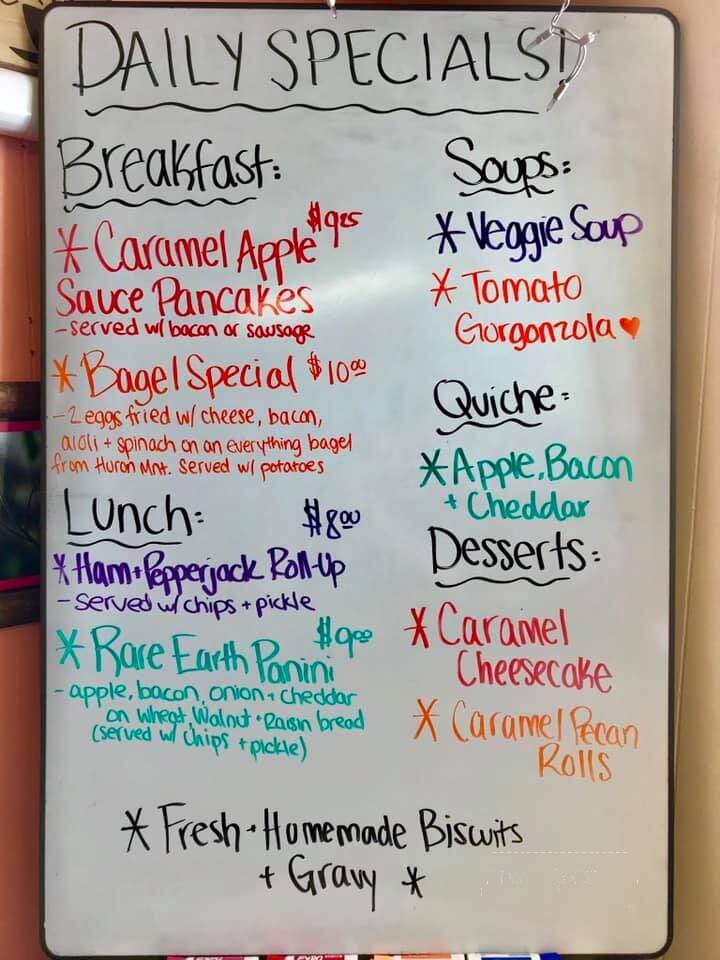 DAILY SPECIALS!
Breakfast:
* Caramel Apple $9.25
Sauce Pancakes
-served w/ bacon or sausage
* Bagel Special $10.00
-2 eggs fried w/ cheese, bacon,
aioli + spinach on an everything bagel
from Huron Mnt. Served w/ potatoes
Lunch: $8.00
* Ham + Pepperjack Roll-Up
- Served w/ chips + pickle
* Rare Earth Panini $9.00
- apple, bacon, onion + cheddar
on Wheat, Walnut + Raisin bread
(served w/ chips + pickle)
Soups:
* Veggie Soup
* Tomato
Gorgonzola ♥
Quiche:
* Apple, Bacon
+ Cheddar
Desserts:
* Caramel
Cheesecake
* Caramel Pecan
Rolls
* Fresh · Homemade Biscuits
+ Gravy *